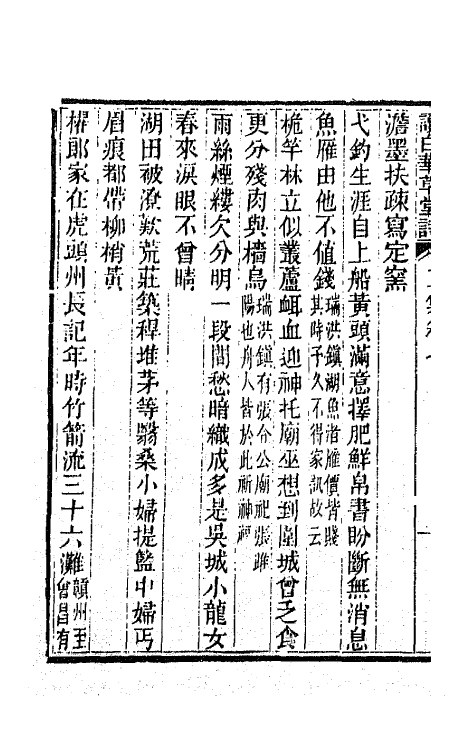 澹墨扶疎寫定窑
弋釣生涯自上船黃頭滿意擇肥鮮帛書盼斷無消息
魚雁由他不值錢瑞洪鎮湖魚渚雁價皆賤其時予久不得家訊故云
桅竿林立似叢蘆衈血迎神托廟巫想到圍城曾乏食
更分殘肉與檣烏瑞洪鎮有張令公廟祀張睢陽也舟人皆於此祈神福
雨絲煙縷欠分明一段閒愁暗織成多是吳城小龍女
春來淚眼不曾晴
湖田被潦歎荒莊築稈堆茅等翳桑小婦提籃中婦丐
眉痕都帶柳梢黃
櫂郎家在虎頭州長記年時竹箭流三十六灘贛州至曾昌有